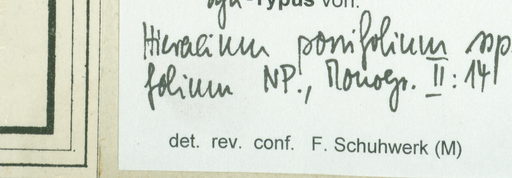 Syn-Typus von:
Hieracium porrifolium ssp
folium NP., Monogr. II: 141
det. rev. conf. F. Schuhwerk (M)